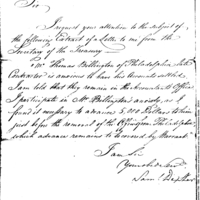 Sir
I request your attention to the subject of
the following Extract of a Letter to me from the
Secretary of the Treasury
Mr Thomas Billington of Philadelphia, late
Contractor is anxious to have his Accounts settled
I am told that they remain in the Accountants Office
I participate in Mr Billingtons anxiety, as I
found it necessary to advance 5,000 Dollars to him
just before the removal of the Offices from Philadelphia
which advance remains to be covered by Warrant
I am Sir
Your obedient
Sam.l Dexter